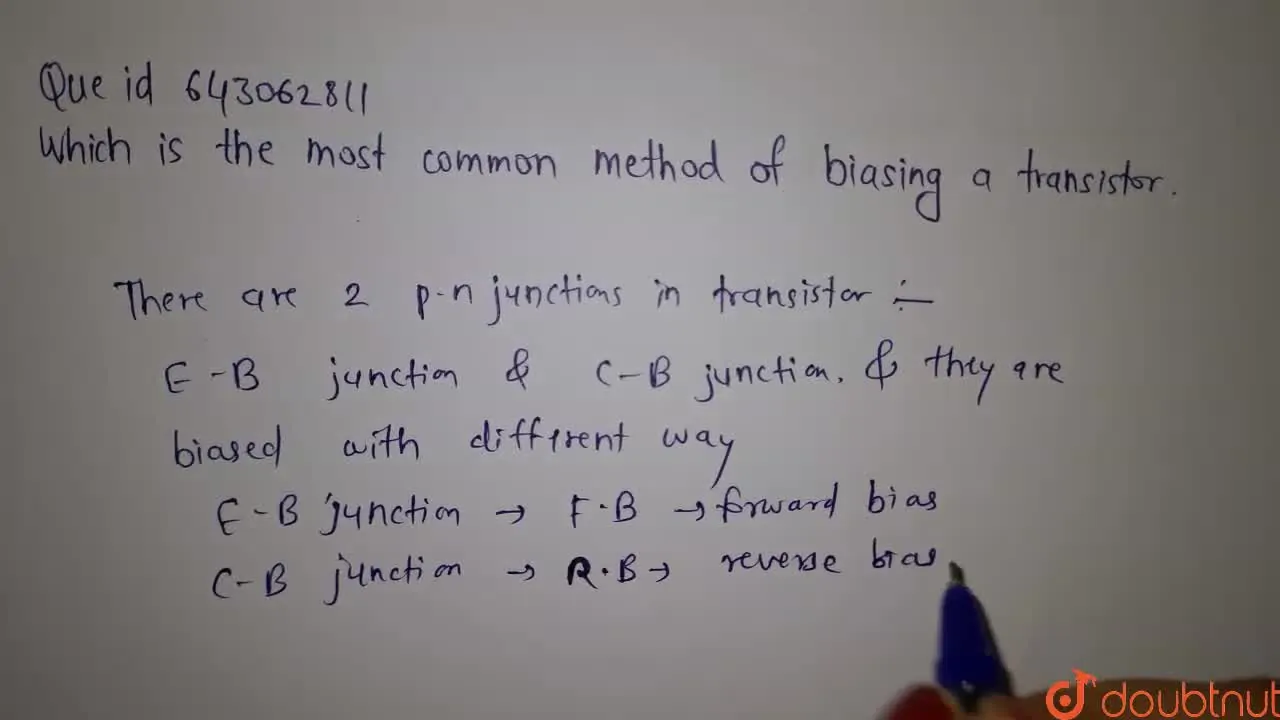 Que id 643062811
Which is the most common method of biasing a transistor.
There are 2 p-n junctions in transistor :-
E-B junction & C-B junction. & they are
biased with different way
E-B junction → F.B → forward bias
C-B junction → R.B → reverse bias
doubtnut